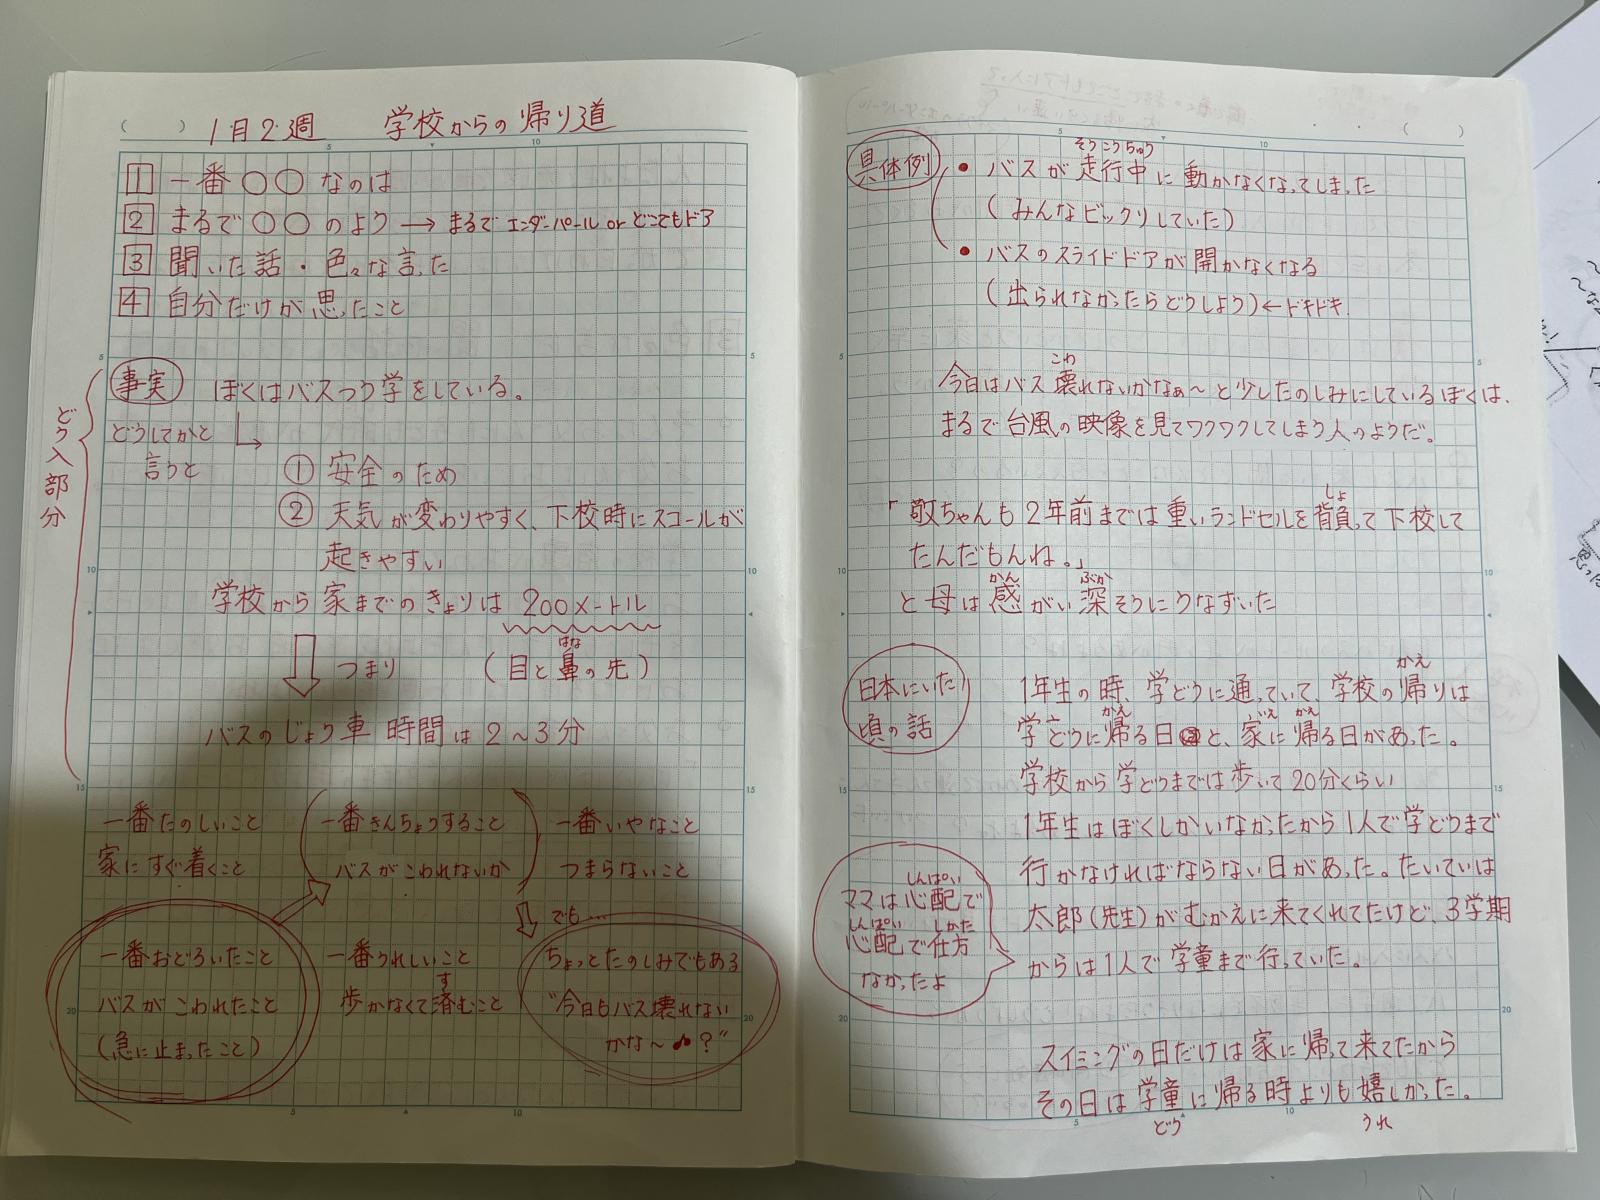 1月2週　学校からの帰り道
1 一番○○なのは
2 まるで○○のよう→まるでエンダーパールorどこでもドア
3 聞いた話・色々な言った
4 自分だけが思ったこと
どう入部分
事実 ぼくはバスつう学をしている。
どうしてかと
言うと
① 安全のため
② 天気が変わりやすく、下校時にスコールが
起きやすい
学校から家までのきょりは200メートル
つまり (目と鼻の先)
はな
バスのじょう車時間は2～3分
一番たのしいこと
家にすぐ着くこと
一番きんちょうすること
バスがこわれないか
一番いやなこと
つまらないこと
でも…
一番おどろいたこと
バスがこわれたこと
(急に止まったこと)
一番うれしいこと
歩かなくて済むこと
す
ちょっとたのしみでもある
"今日もバス壊れない
かな～♪?"
具体例
そうこうちゅう
・バスが走行中に動かなくなってしまった
(みんなビックリしていた)
・バスのスライドドアが開かなくなる
(出られなかったらどうしよう)←ドキドキ
こわ
今日はバス壊れないかなぁ～と少したのしみにしているぼくは、
まるで台風の映像を見てワクワクしてしまう人のようだ。
しょ
「敬ちゃんも2年前までは重いランドセルを背負って下校して
たんだもんね。」
かん ぶか
と母は感がい深そうにうなずいた
日本にいた
頃の話
かえ
1年生の時、学どうに通っていて、学校の帰りは
かえ いえ かえ
学どうに帰る日と、家に帰る日があった。
学校から学どうまでは歩いて20分くらい
1年生はぼくしかいなかったから1人で学どうまで
行かなければならない日があった。たいていは
太郎(先生)がむかえに来てくれてたけど、3学期
からは1人で学童まで行っていた。
しんぱい
ママは心配で
しんぱい しかた
心配で仕方
なかったよ
スイミングの日だけは家に帰って来てたから
その日は学童に帰る時よりも嬉しかった。
どう うれ